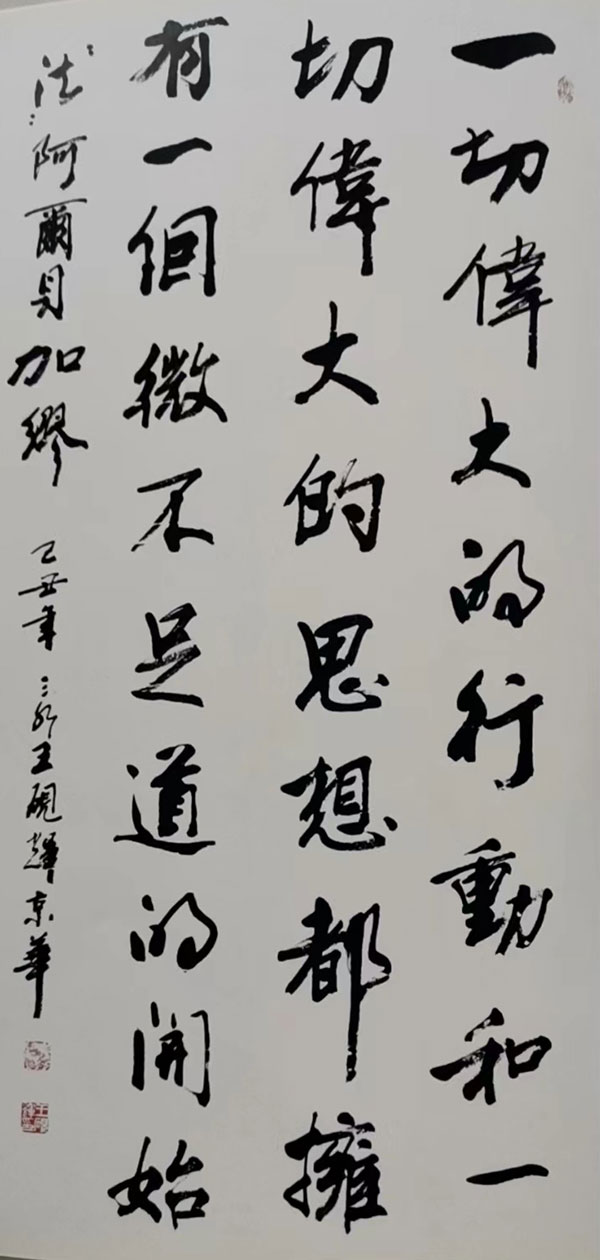 一切偉大的行動和一
切偉大的思想都擁
有一個微不足道的開始
法：阿爾貝加繆 己丑年 王硯輝京華